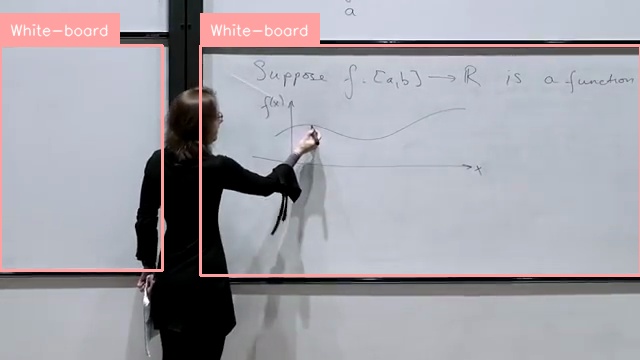 a
White-board
White-board
Suppose f. [a,b] → ℝ is a function
f(x)
x